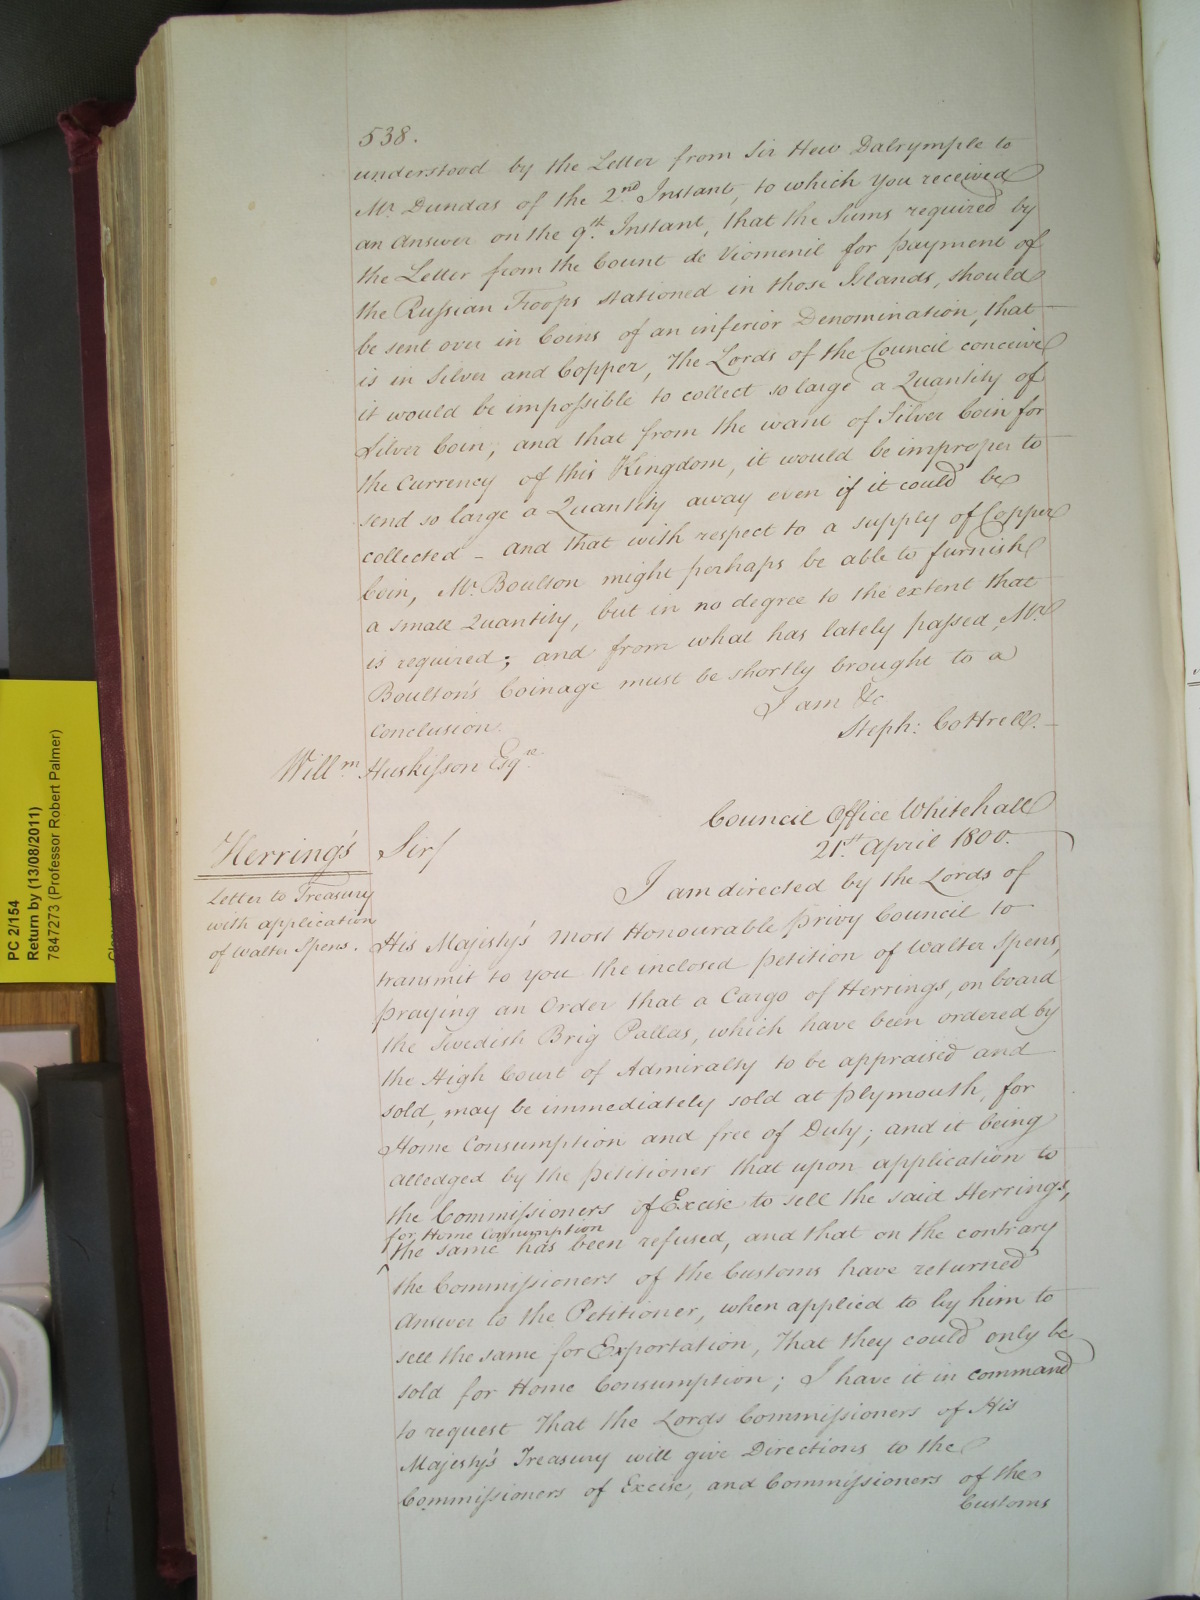 538.
understood by the Letter from Sir Hew Dalrymple to
Mr. Dundas of the 2nd. Instant, to which You received
an answer on the 9th. Instant, that the Sums required by
the Letter from the Count de Viomenil for payment of
the Russian Troops stationed in those Islands, should
be sent over in Coins of an inferior Denomination, that
is in Silver and Copper, the Lords of the Council conceive
it would be impossible to collect so large a Quantity of
Silver Coin, and that from the want of Silver Coin for
the Currency of this Kingdom, it would be improper to
send so large a Quantity away even if it could be
collected - and that with respect to a supply of Copper
Coin, Mr. Boulton might perhaps be able to furnish
a small Quantity, but in no degree to the extent that
is required; and from what has lately passed, Mr.
Boulton's Coinage must be shortly brought to a
Conclusion.
I am &c
Steph: Cottrell.
Willm. Huskisson Esqre.
Council Office Whitehall
21st. April 1800.
Herring's
Letter to Treasury
with application
of Walter Spens.
Sir/
I am directed by the Lords of
His Majesty's most Honourable Privy Council to
transmit to you the inclosed petition of Walter Spens,
praying an Order that a Cargo of Herrings, on board
the Swedish Brig Pallas, which have been ordered by
the High Court of Admiralty to be appraised and
sold, may be immediately sold at Plymouth, for
Home Consumption and free of Duty; and it being
alledged by the petitioner that upon application to
the Commissioners of Excise to sell the said Herrings,
for Home Consumption
the same has been refused, and that on the contrary
the Commissioners of the Customs have returned
Answer to the Petitioner, when applied to by him to
sell the same for Exportation, That they could only be
sold for Home Consumption; I have it in command
to request That the Lords Commissioners of His
Majesty's Treasury will give Directions to the
Commissioners of Excise, and Commissioners of the
Customs
PC 2/154
Return by (13/08/2011)
7847273 (Professor Robert Palmer)